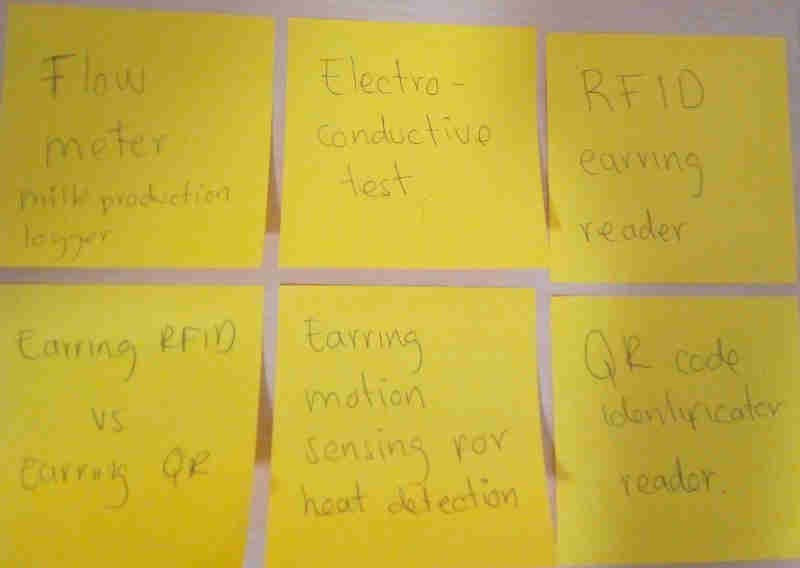 Flow
meter
milk production
logger
Electro-
conductive
test
RFID
earring
reader
Earring RFID
vs
Earring QR
Earring
motion
sensing for
heat detection
QR code
identificator
reader.